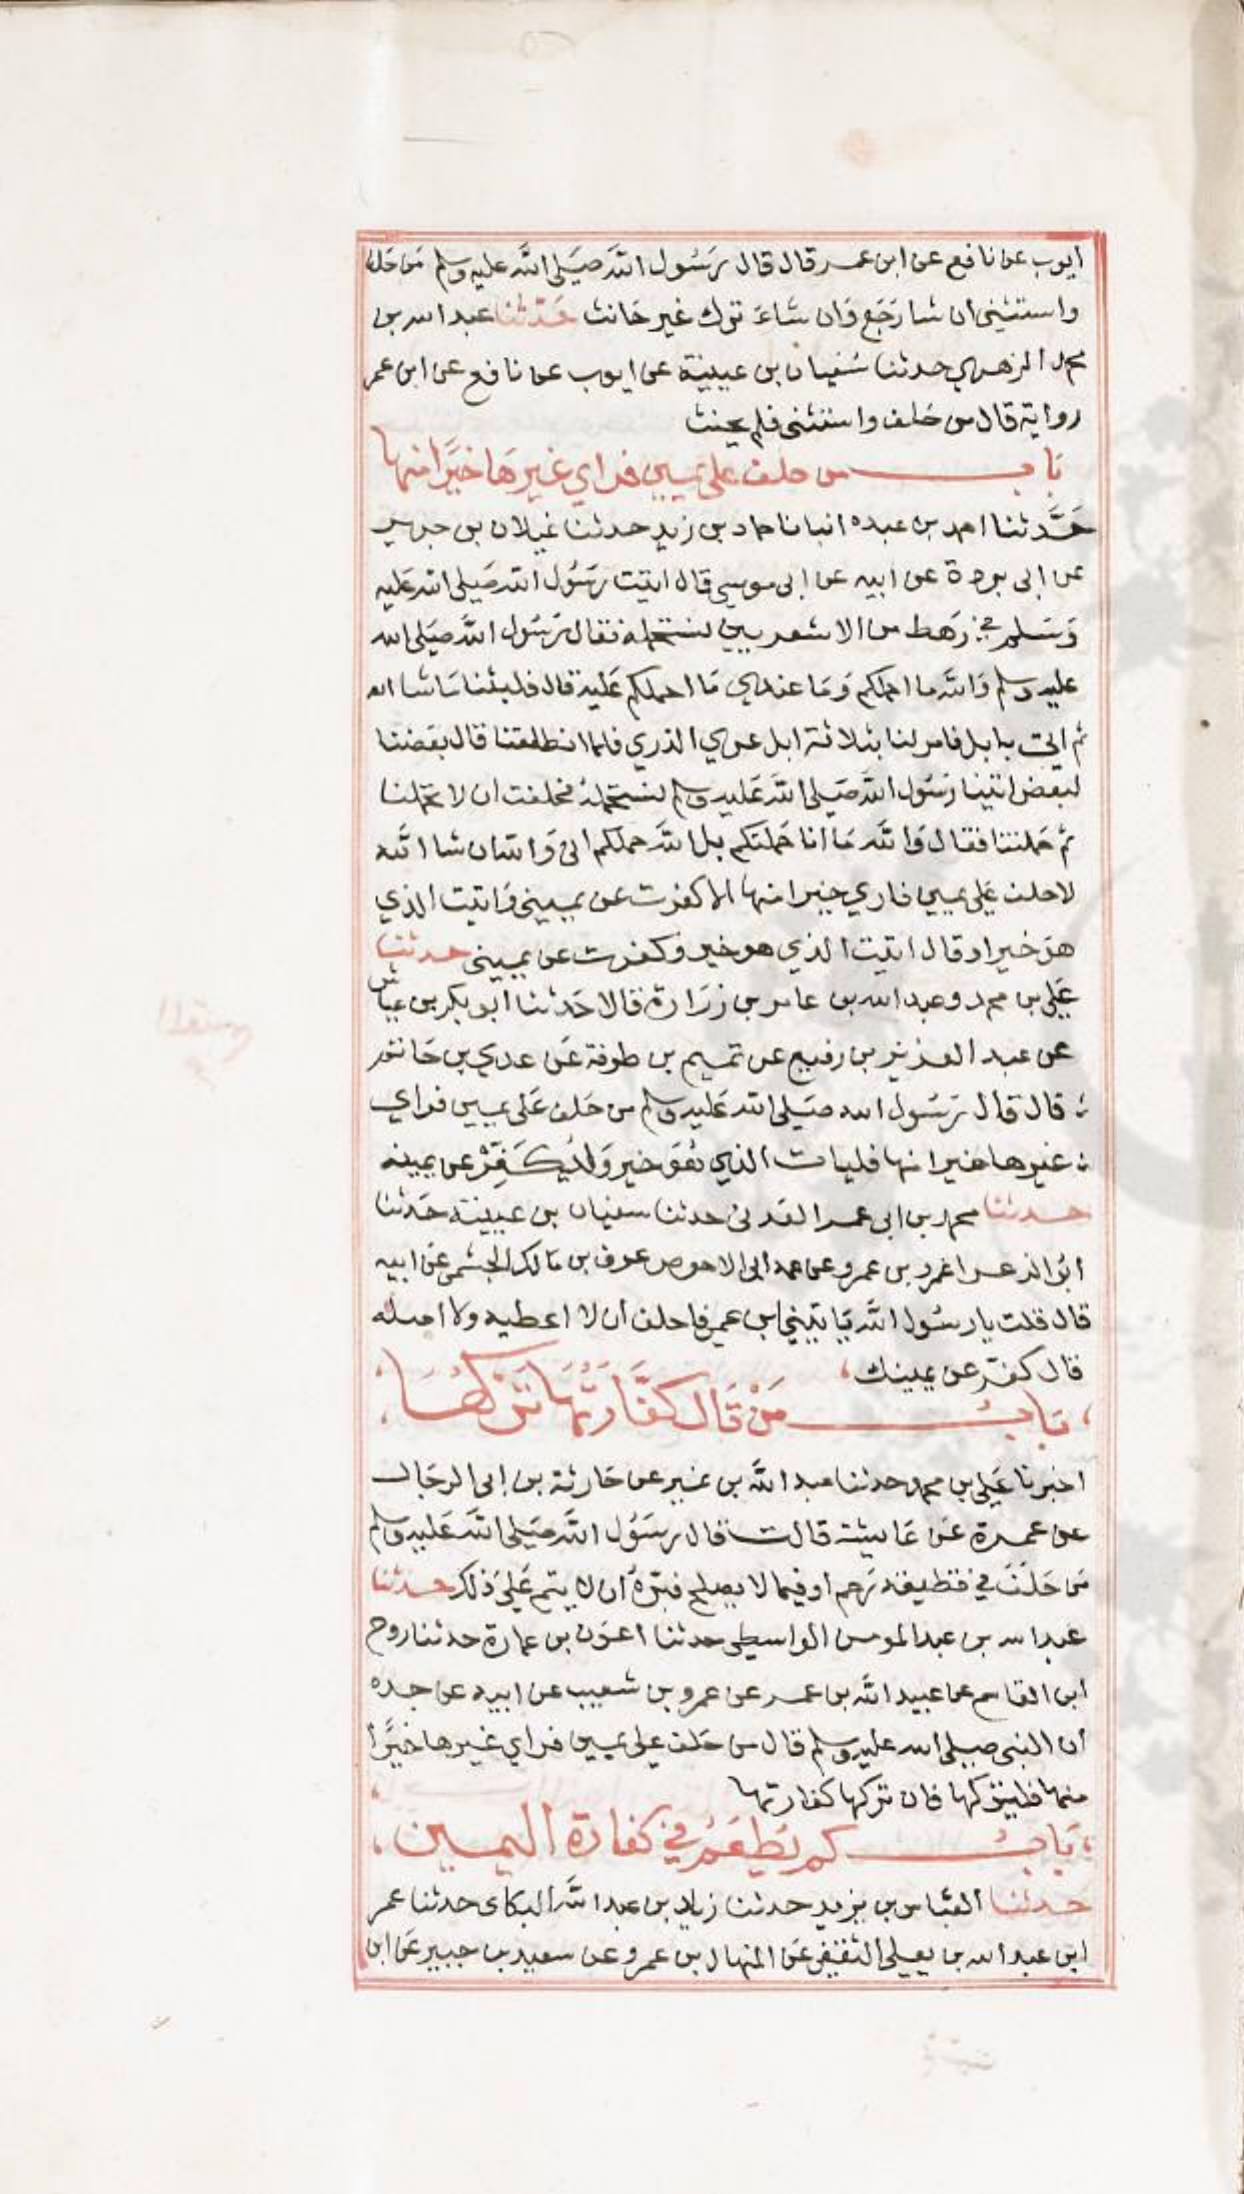 ايوب عن نافع عن ابن عمر قال قال رَسُول الله صَلى الله عليه وسلم مَن حَلف
واستثنى ان شا رَجَع وَان شَاءَ ترك غير حَانث حَدّثنا عبد الله بن
محمد الزهري حدثنا سُفيان بن عيينة عن ايوب عن نافع عن ابن عمر
رواية قال من حَلف واستثنى فلم يحنث
بَاب من حلف على يمين فراي غيرهَا خيرًا منها
حَدَّثنا احمد بن عبده انبانا حماد بن زيد حدثنا غيلان بن جرير
عن ابى بردة عن ابيه عن ابى موسى قال اتيت رَسُول الله صَلى الله عَليه
وَسَلم في رَهط من الاشعريين نستحمله فقال رَسُول الله صَلى الله
عليه وسلم وَالله ما احملكم وَمَا عندي مَا احملكم عَليه قال فلبثنا مَا شا الله
ثم اتى بابل فامر لنا بثلاثة ابل غر الذري فلما انطلقنا قال بعَضنا
لبعض اتينا رَسُول الله صَلى الله عَليه وسلم نستحملهُ فحلف ان لا يحملنا
ثم حَملنا فقال وَالله مَا انا حَملتكم بل الله حملكم انى وَالله ان شا الله
لا احلف عَلى يمين فاري خيرا منها الا كفرت عن يمينى وَاتيت الذي
هوَ خير او قال اتيت الذي هو خير وكفرت عن يمينى حدثنا
عَلي بن محمد وعبد الله بن عامر بن زرَارة قالا حَدثنا ابو بكر بن عياش
عن عبد العزيز بن رفيع عن تميم بن طرفة عَن عدي بن حَاتم
قال قال رَسُول الله صَلى الله عَليه وسلم من حَلف عَلى يمين فراي
غيرها خيرا منها فليات الذي هُوَ خير وَليُكَفِّرْ عن يمينه
حدثنا محمد بن ابى عمر العَدنى حدثنا سفيان بن عيينة حَدثنا
ابُو الزعرا عَمرو بن عمرو عن عمه ابى الاحوص عوف بن مَالك الجشمى عَن ابيه
قال قلت يا رسُول الله يَاتينى ابن عمى فاحلف ان لا اعطيه ولا اصله
قال كفر عن يمينك
بَابُ مَنْ قَال كَفَّارَتُهَا تَرْكُهَا
اخبرنا عَلي بن محمد حدثنا عبد الله بن نمير عن حَارثة بن ابى الرجَال
عن عمرة عَن عَايشة قالت قال رسَوُل الله صَلى الله عَليه وَسلم
مَن حَلَفَ في قطيعة رَحم او فيما لا يصلح فبرهُ ان لا يتم عَلى ذلك حدثنا
عبد الله بن عبد المومن الواسطى حدثنا عَون بن عمارة حدثنا روح
ابن القاسم عن عبيد الله بن عمر عن عمرو بن شعيب عن ابيه عن جده
ان النبى صلى الله عليه وسلم قال من حَلف على يمين فراي غيرها خيرًا
منها فليتركها فان تركها كفارتها
بَابُ كم يُطعَمُ في كفارة اليمين
حدثنا العَباس بن يزيد حدثنا زياد بن عبد الله البكاى حدثنا عمر
ابن عبد الله بن يعلى الثقفى عَن المنهال بن عمرو عن سعيد بن جبير عَن ابن